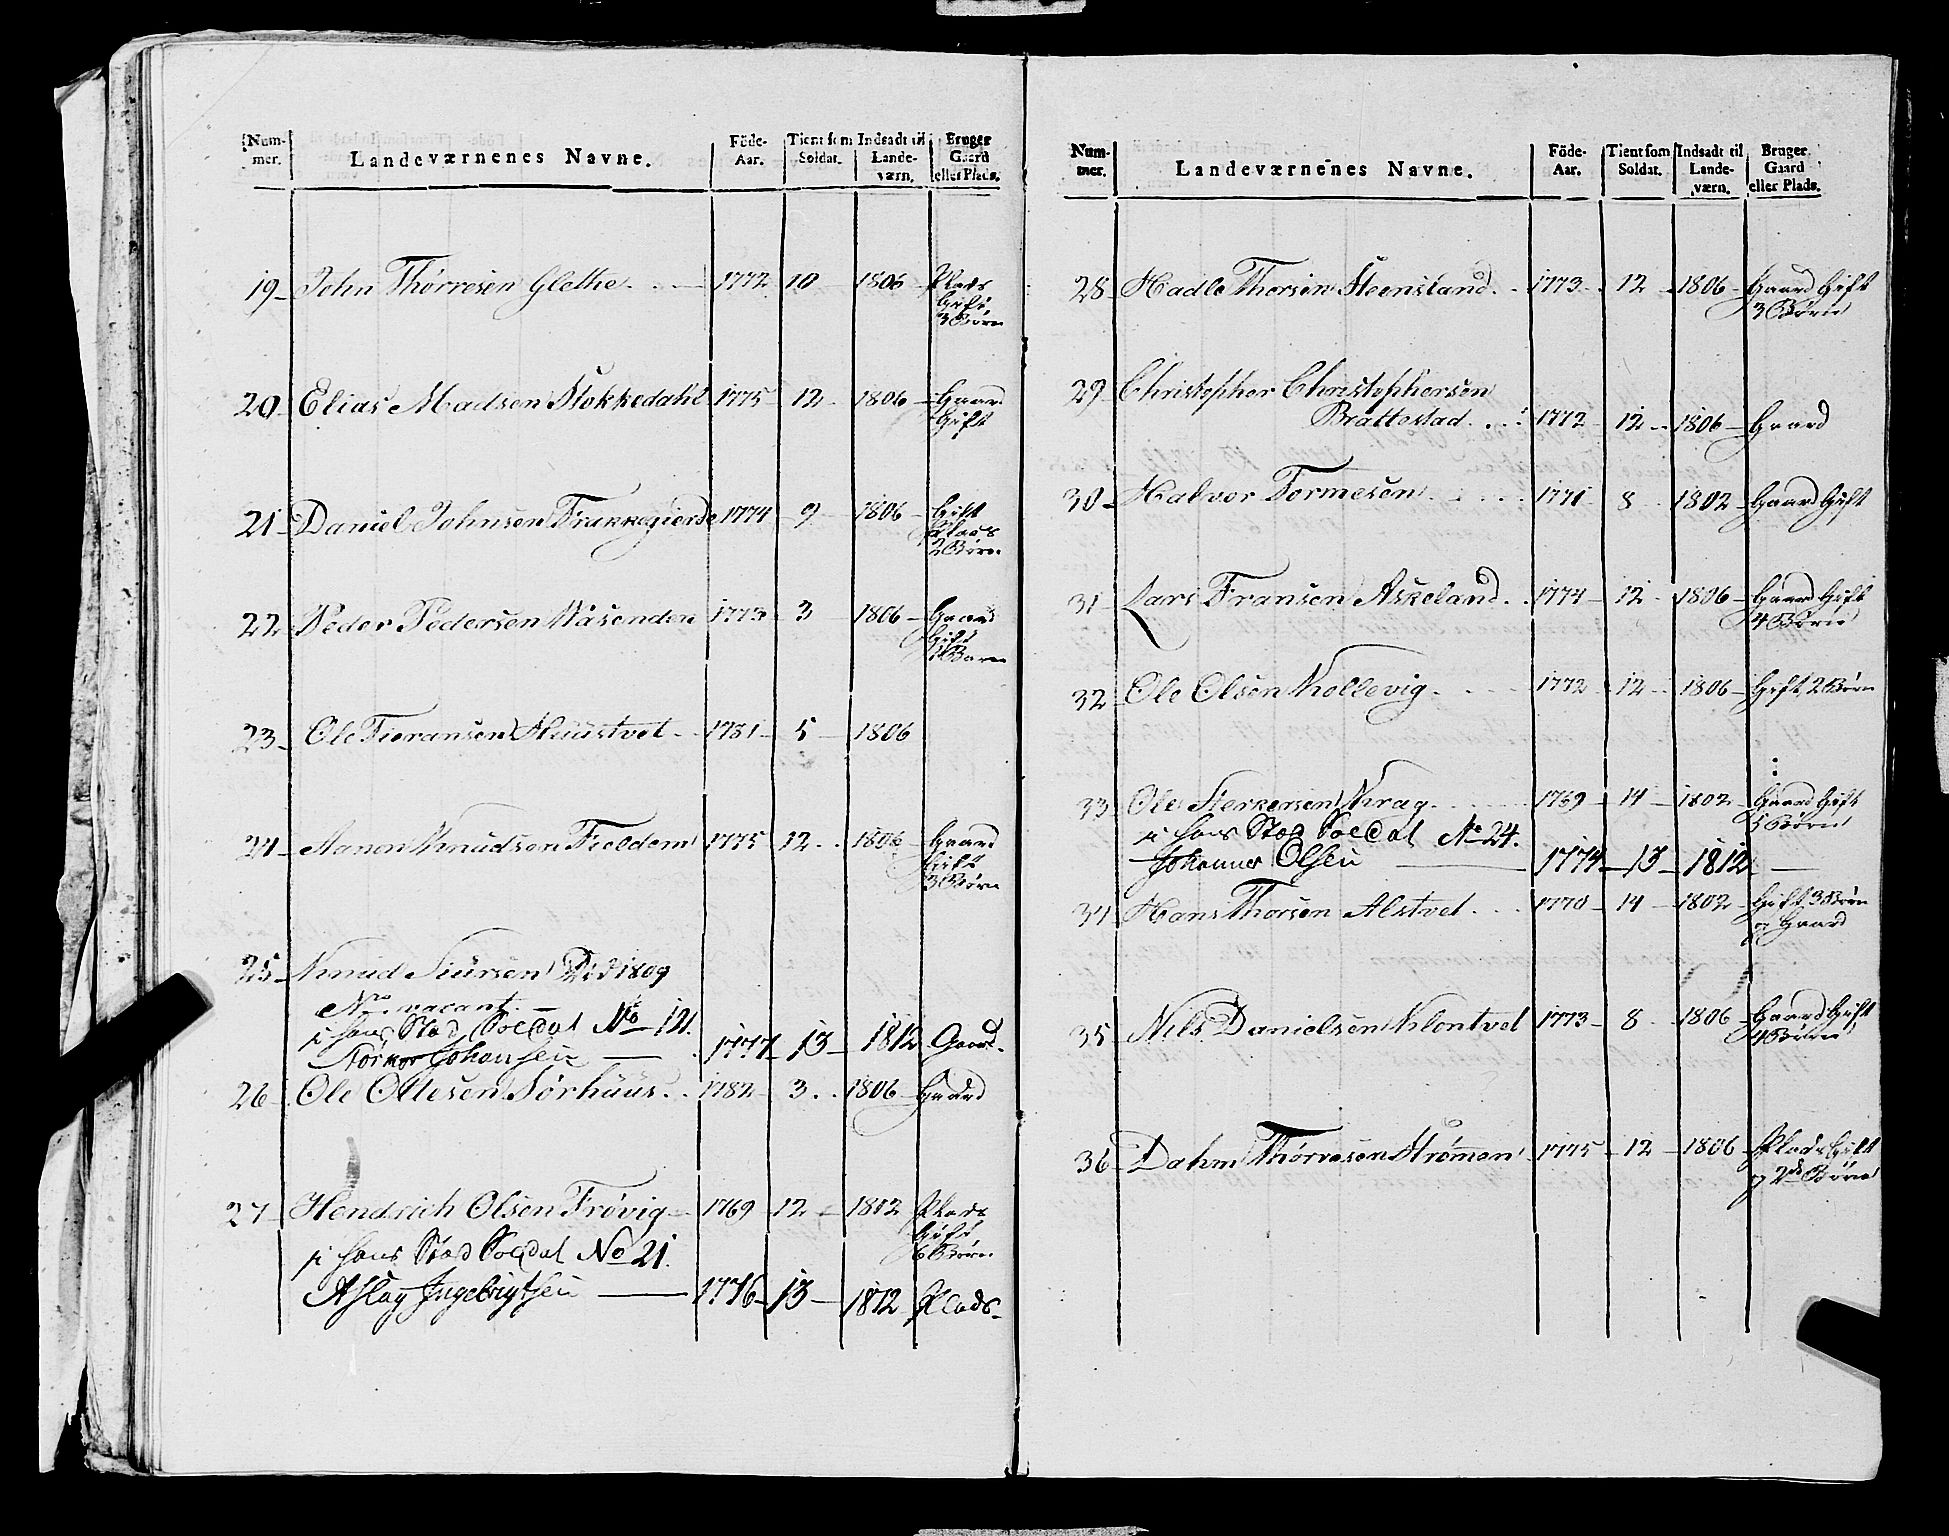 Num- Landeværnenes Navne. Föde- Tient som Indsadt til Bruger
mer. Aar. Soldat. Lande- Gaard
værn. eller Plads.
19 John Thørresen Glethe 1772 10 1806 Plads
Gift
3 Børn
20 Elias Madsen Stokkedahl 1775 12 1806 Gaard
Gift
21 Daniel Johnsen Frakkegierde 1774 9 1806 Gift
Plads
2 Børn
22 Peder Pedersen Waasenden 1773 3 1806 Gaard
Gift
1 Barn
23 Ole Tieransen Huustvet 1781 5 1806
24 Aanen Knudsen Fieldem 1775 12 1806 Gaard
Gift
3 Børn
25 Knud Siursen Död 1809
No vacant
i hans Stad Soldat No 121.
Torkor Johansen 1777 13 1812 Gaard.
26 Ole Ollesen Sørhuus 1782 3 1806 Gaard
27 Hendrich Olsen Frøvig 1769 12 1812 Plads
Gift
6 Børn
i hans Stad Soldat No 21.
Aslag Ingebrigtsen 1776 13 1812 Plads
Num- Landeværnenes Navne. Föde- Tient som Indsadt til Bruger
mer. Aar. Soldat. Lande- Gaard
værn. eller Plads.
28 Hadle Thorsen Steensland 1773 12 1806 Gaard Gift
3 Børn
29 Christopher Christophersen
Brattestad 1772 12 1806 Gaard
30 Halvor Tormesen 1771 8 1802 Gaard Gift
31 Lars Fransen Askeland 1774 12 1806 Gaard Gift
4 Børn
32 Ole Olsen Kollevig 1772 12 1806 Gift, 2 Børn
33 Ole Sterkersen Krag 1769 14 1802 Gaard Gift
5 Børn
i hans Stad Soldat No 24.
Johannes Olsen 1774 13 1812
34 Hans Thorsen Alstvet 1770 14 1802 Gift 3 Børn
og Gaard
35 Nils Danielsen Klontvet 1773 8 1806 Gaard Gift
4 Børn
36 Dahm Thørresen Strømmen 1775 12 1806 Plads Gift
og 2de Børn